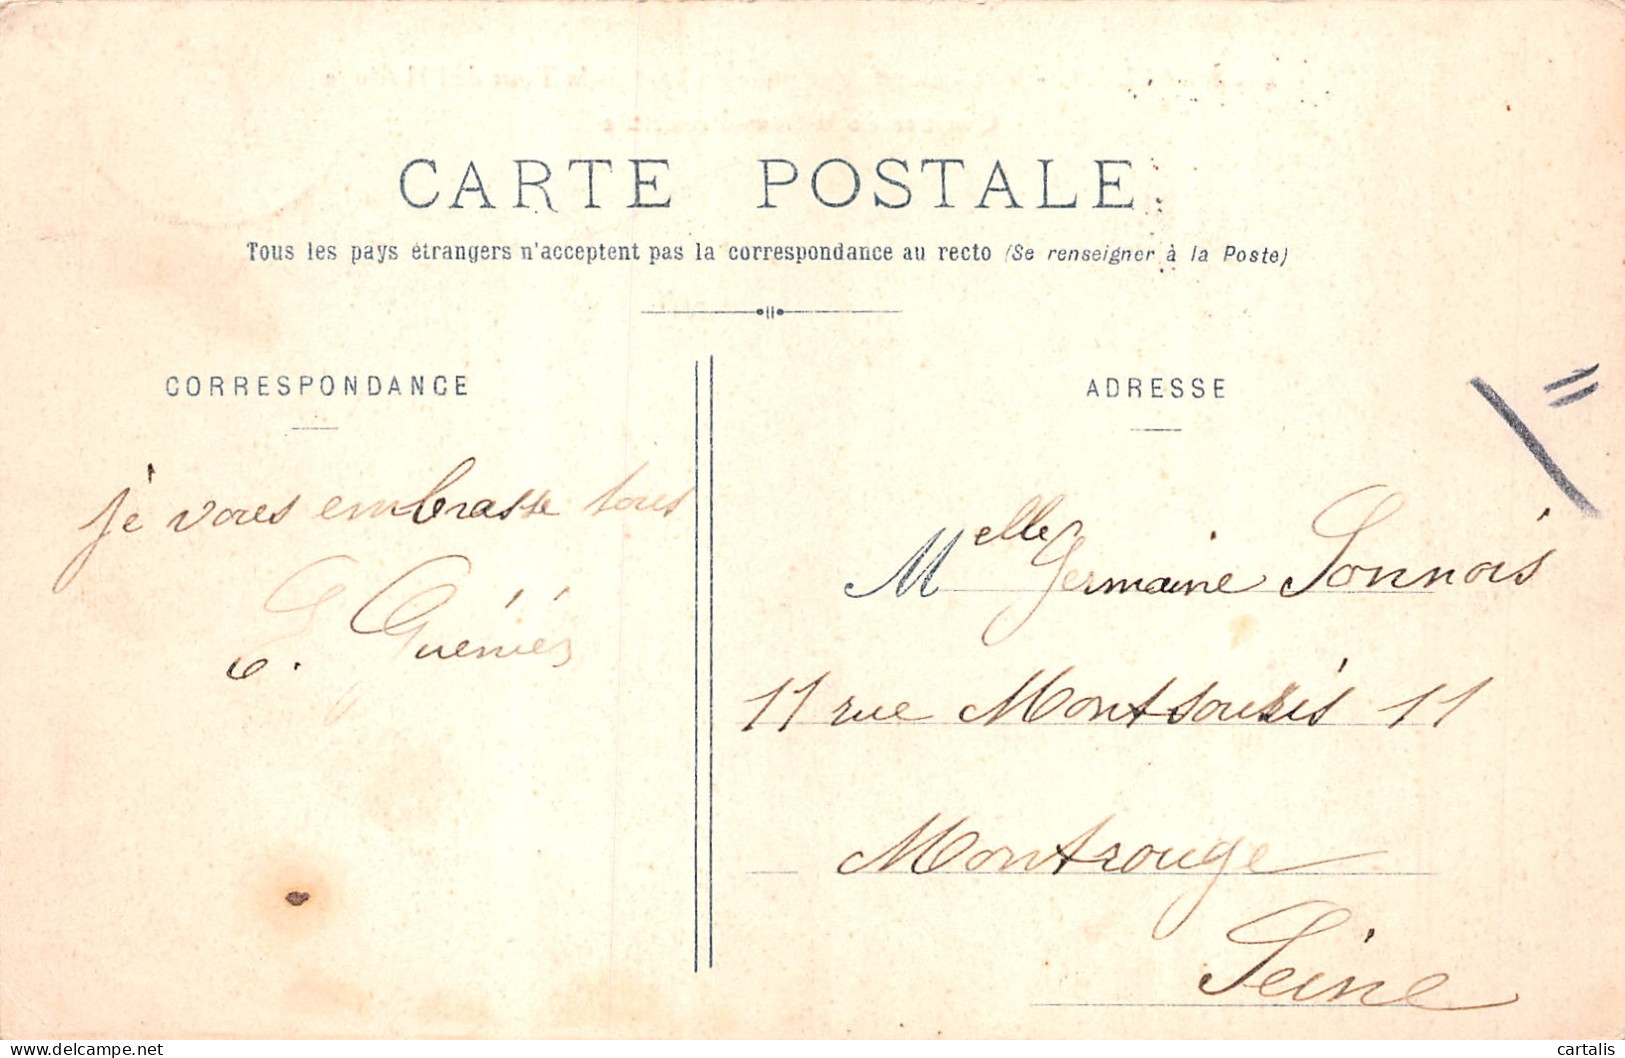 CARTE POSTALE
Tous les pays étrangers n'acceptent pas la correspondance au recto (Se renseigner à la Poste)
CORRESPONDANCE
je vous embrasse tous
G. Guéniés
ADRESSE
Melle Germaine Sonnois
11 rue Montsouris 11
Montrouge
Seine
www.delcampe.net
cartalis